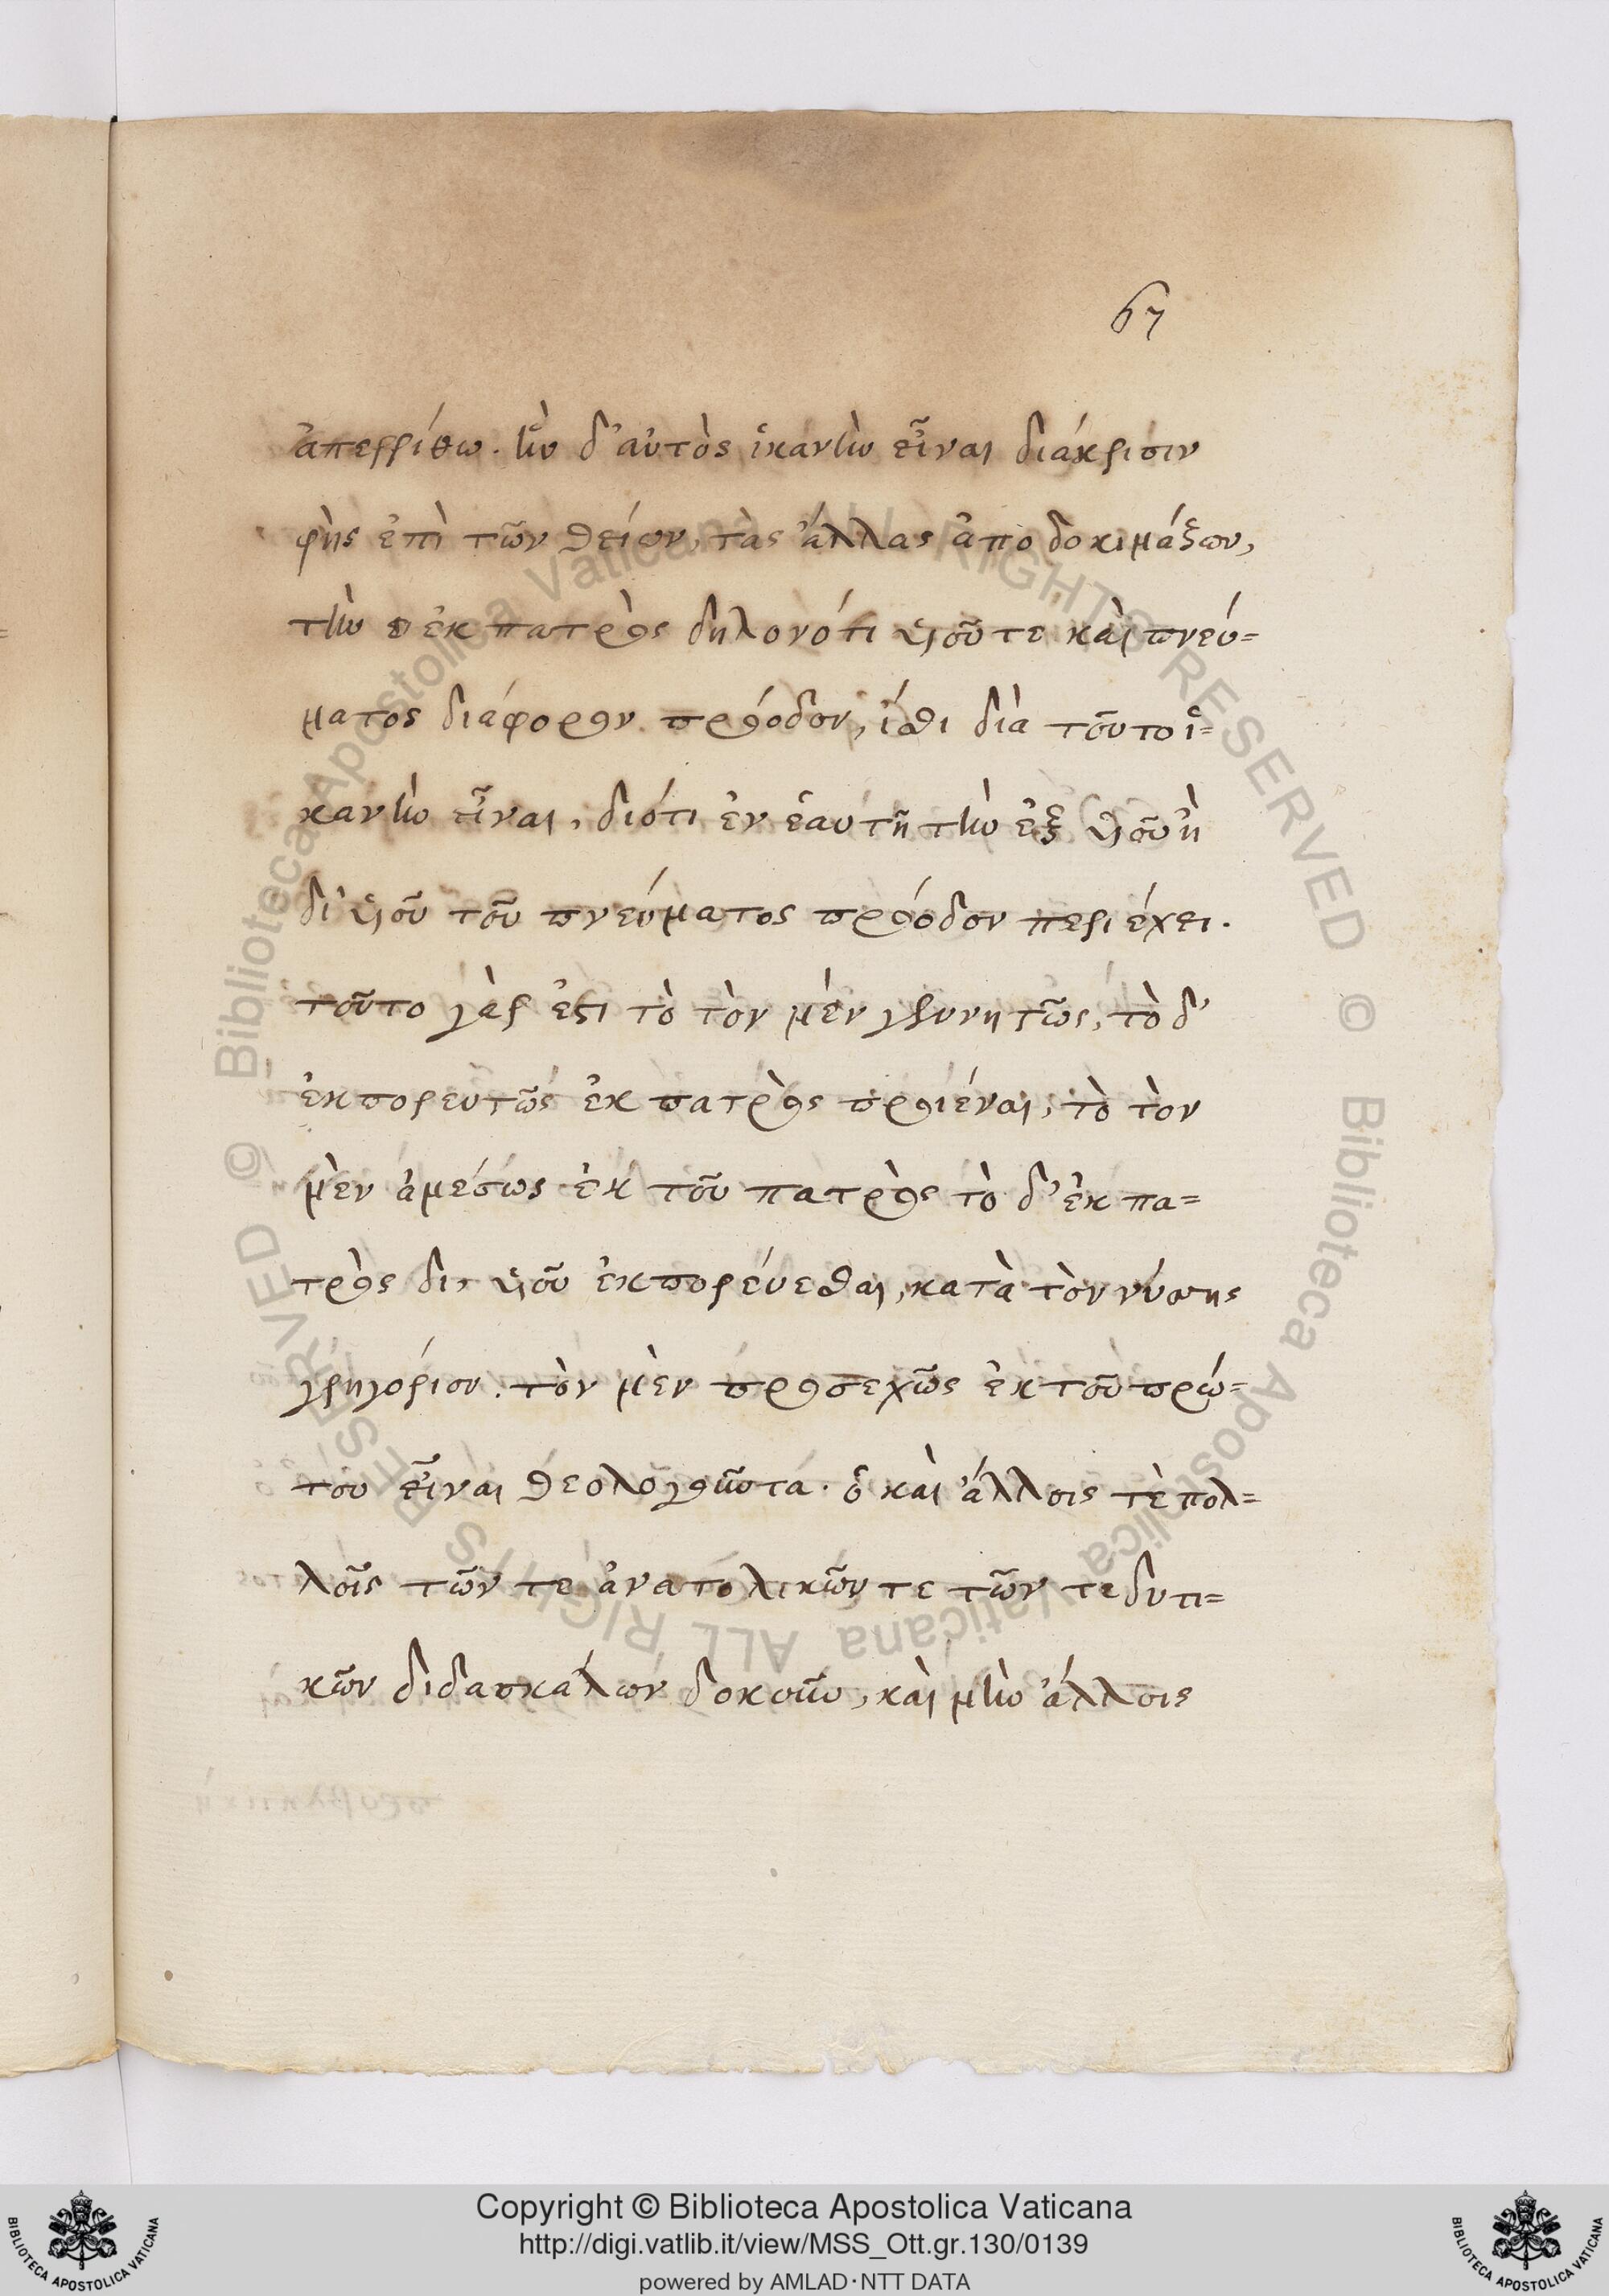 67
ἀπερρίφθω. ἣν δ' αὐτὸς ἱκανὴν εἶναι διάκρισιν
φὴς ἐπὶ τῶν θείων, τὰς ἄλλας ἀποδοκιμάζων,
τὴν ἐκ πατρὸς δηλονότι υἱοῦ τε καὶ πνεύ=
ματος διάφορον πρόοδον, ἴσθι διὰ τοῦτο ἱ=
κανὴν εἶναι, διότι ἐν ἑαυτῇ τὴν ἐξ υἱοῦ ἢ
δι' υἱοῦ τοῦ πνεύματος πρόοδον περιέχει.
τοῦτο γὰρ ἐστι τὸ τὸν μὲν γεννητῶς, τὸ δ'
ἐκπορευτῶς ἐκ πατρὸς προιέναι, τὸ τὸν
μὲν ἀμέσως ἐκ τοῦ πατρὸς τὸ δ' ἐκ πα=
τρὸς δι' υἱοῦ ἐκπορεύεσθαι, κατὰ τὸν νύσης
γρηγόριον. τὸν μὲν προσεχῶς ἐκ τοῦ πρώ=
του εἶναι θεολογοῦντα. ὃ καὶ ἄλλοις τὲ πολ=
λοῖς τῶν τε ἀνατολικῶν τε τῶν τε δυτι=
κῶν διδασκάλων δοκοῦν, καὶ μὴν ἄλλοις
Copyright © Biblioteca Apostolica Vaticana
http://digi.vatlib.it/view/MSS_Ott.gr.130/0139
powered by AMLAD·NTT DATA
BIBLIOTECA APOSTOLICA VATICANA
BIBLIOTECA APOSTOLICA VATICANA
© Biblioteca Apostolica Vaticana ALL RIGHTS RESERVED © Biblioteca Apostolica Vaticana ALL RIGHTS RESERVED